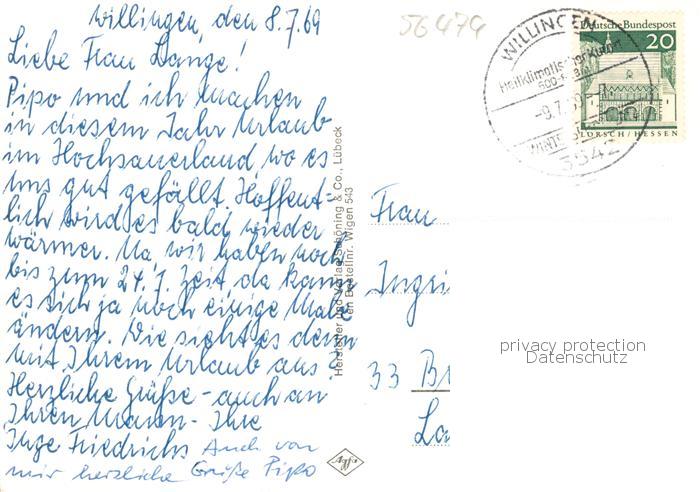 Willingen, den 8.7.69
Liebe Frau Lange!
Pipo und ich machen
in diesem Jahr Urlaub
im Hochsauerland wo es
uns gut gefällt. Hoffent-
lich wird es bald wieder
wärmer. Na wir haben noch
bis zum 24.7. Zeit, da kann
es sich ja noch einige Male
ändern. Wie sieht es denn
mit Ihrem Urlaub aus?
Herzliche Grüße - auch an
Ihren Mann - Ihre
Inge Friedrichs Auch von
mir herzliche Grüße Pipo
56474
WILLINGEN
Heilklimatischer Kurort
-8.7.69-
3542
Deutsche Bundespost
20
LORSCH/HESSEN
Hersteller und Verlag Schöning & Co., Lübeck
Bestellnr. Wigen 543
Frau
Ingri
33 Br
La
privacy protection
Datenschutz
Agfa